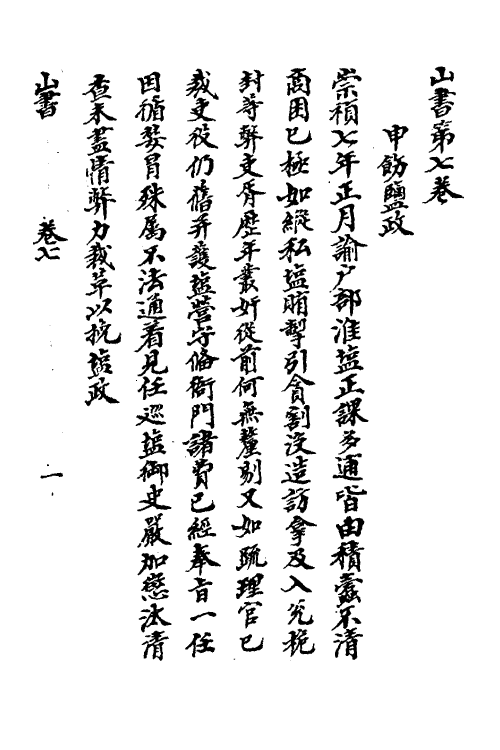 山書第七卷
申飭鹽政
崇禎七年正月諭户部淮塩正課多逋皆由積蠹不清
商困已極如縱私塩賄掣引貪割没造訪拿及入兊挽
封等弊吏胥歷年叢奸從前何無釐剔又如疏理官已
裁吏役仍舊并護塩營守俻衙門諸費已經奉旨一任
因循娄冐殊属不法通着見任巡塩御史嚴加懲汰清
查未盡情弊力裁革以挽塩政
山書
卷七
一